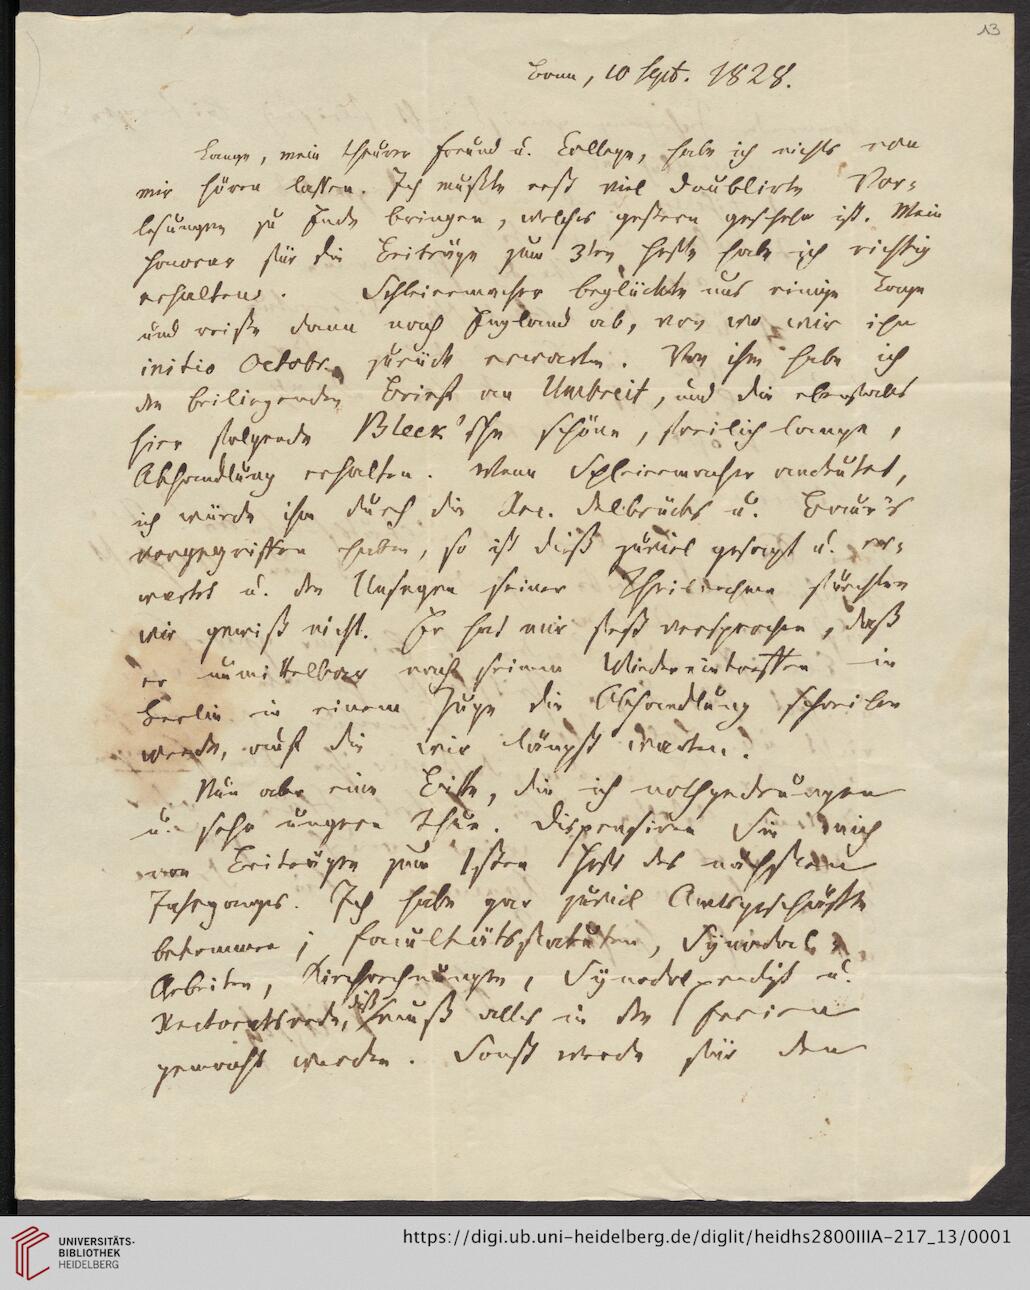 13
Bonn, 10 Sept. 1828.
Lange, mein theurer Freund u. College, habe ich nichts von
mir hören lassen. Ich mußte erst viel doublirte Vor-
lesungen zu Ende bringen, welches gestern geschehn ist. Mein
Honorar für die Beiträge zum 3ten Hefte habe ich richtig
erhalten. Schleiermacher beglückte uns einige Tage
und reiste dann nach England ab, von wo wir ihn
initio Octobr. zurück erwarten. Von ihm habe ich
den beiliegenden Brief an Umbreit, und die ebenfalls
hier folgende Bleek'sche schöne, freilich lange,
Abhandlung erhalten. Wenn Schleiermacher andeutet,
ich würde ihm durch die Rec. Delbrücks u. Baur's
vorgegriffen haben, so ist dieß zuviel gesagt u. er-
wartet u. den Unsegen seiner fürchten
wir gewiß nicht. Er hat mir fest versprochen, daß
er unmittelbar nach seinem Wiedereintreffen in
Berlin in einem Zuge die Abhandlung schreiben
werde, auf die wir längst warten.
Nun aber eine Bitte, die ich nothgedrungen
u. sehr ungern thue. Dispensiren Sie mich
von Beiträgen zum 1sten Heft des nächsten
Jahrganges. Ich habe gar zuviel Amtsgeschäfte
bekommen; Facultätsstatuten, Synodal-
Arbeiten, Kirchrechnungen, Synodalpredigt u.
Rectoratsrede, dieß muß alles in den Ferien
gemacht werden. Sonst werde für den
UNIVERSITÄTS-
BIBLIOTHEK
HEIDELBERG
https://digi.ub.uni-heidelberg.de/diglit/heidhs2800IIIA-217_13/0001